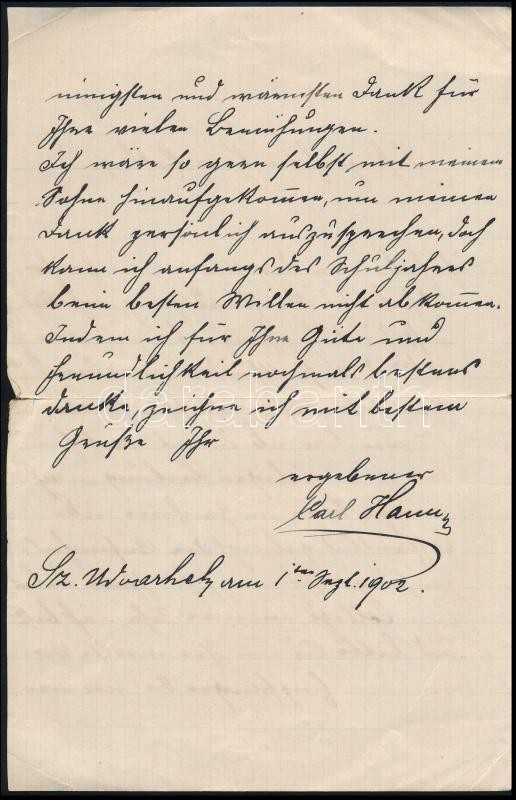 innigsten und wärmsten Dank für
Ihre vielen Bemühungen.
Ich wäre so gern selbst mit meinem
Sohne hinaufgekommen, um meinen
Dank persönlich auszusprechen, doch
kann ich anfangs des Schuljahres
beim besten Willen nicht abkommen.
Indem ich für Ihre Güte und
Freundlichkeit nochmals bestens
danke, zeichne ich mit bestem
Gruße Ihr
ergebener
Carl Haun
Sz. Udvarhely am 1ten Sept. 1902.
darabanth